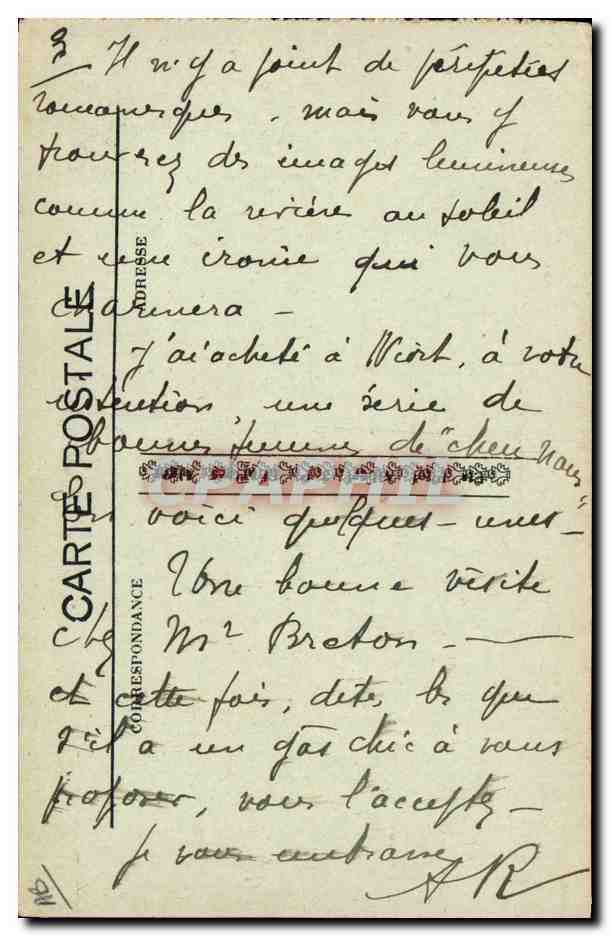 3
Il n'y a point de péripéties
romanesques, mais vous y
trouverez des images lumineuses
comme la rivière au soleil
et une ironie qui vous
charmera –
J'ai acheté à Niort, à votre
intention, une série de
bonnes femmes de "chen nous"
En voici quelques-unes –
Une bonne visite
chez Mr Breton –
et cette fois, dites les que
s'il a un gâs chic à vous
proposer, vous l'acceptez –
Je vous embrasse
AR
CARTE POSTALE
ADRESSE
CORRESPONDANCE
CPAPHIL